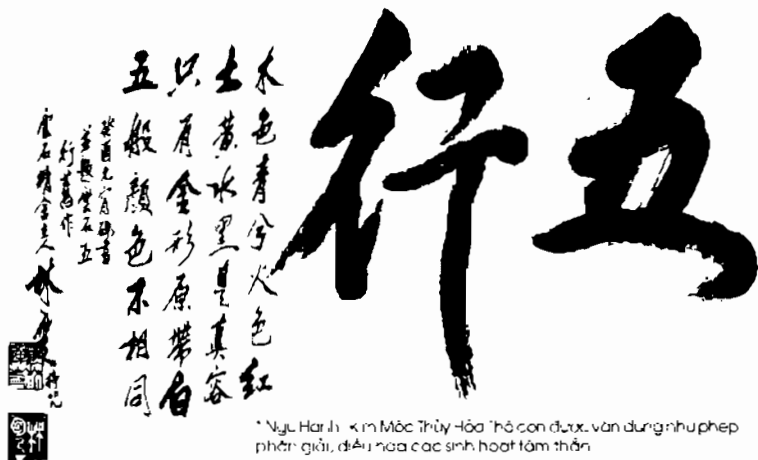 五行
木色青兮火色紅
土黃水黑是真容
只有金形原帶白
五般顏色不相同
癸酉元宵
雲石五
行
雲石精舍主人
* Ngũ Hành: Kim Mộc Thủy Hỏa Thổ còn được vận dụng như phép
phân giải, điều hòa các sinh hoạt tâm thần